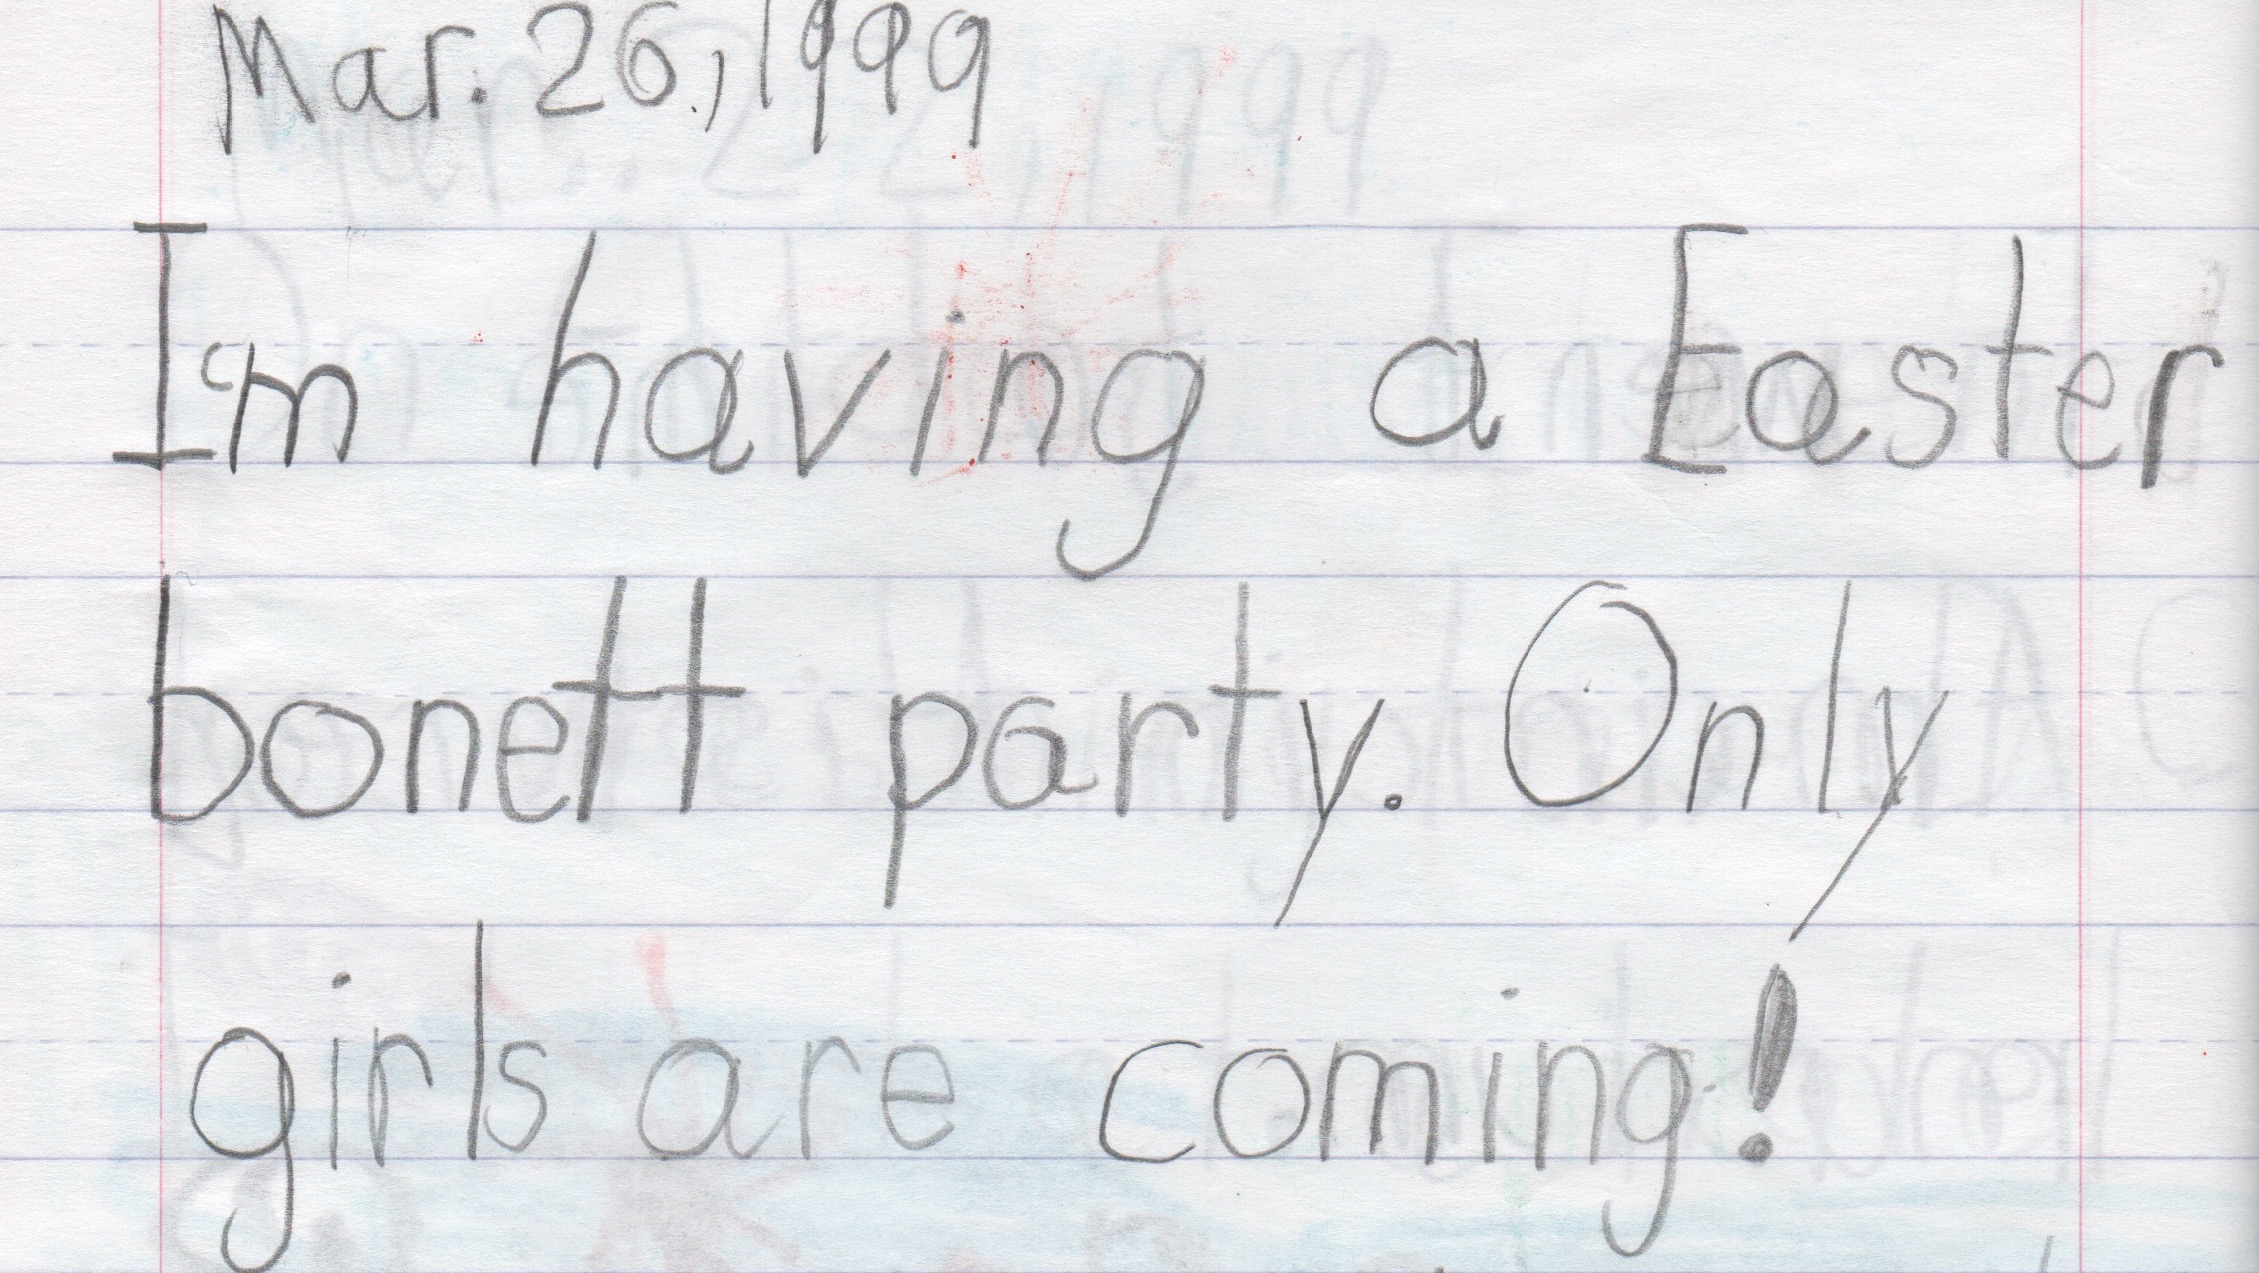 Mar. 26, 1999
I'm having a Easter
bonett party. Only
girls are coming!